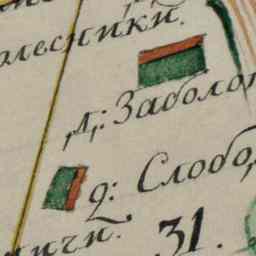 лесники.
Д: Заболо
Д: Слобо
ичи. 31.